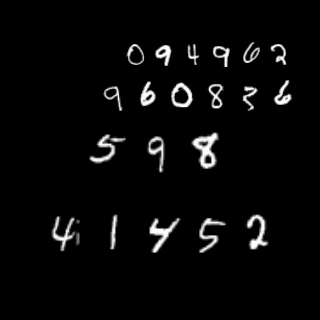 094962
960836
598
41452